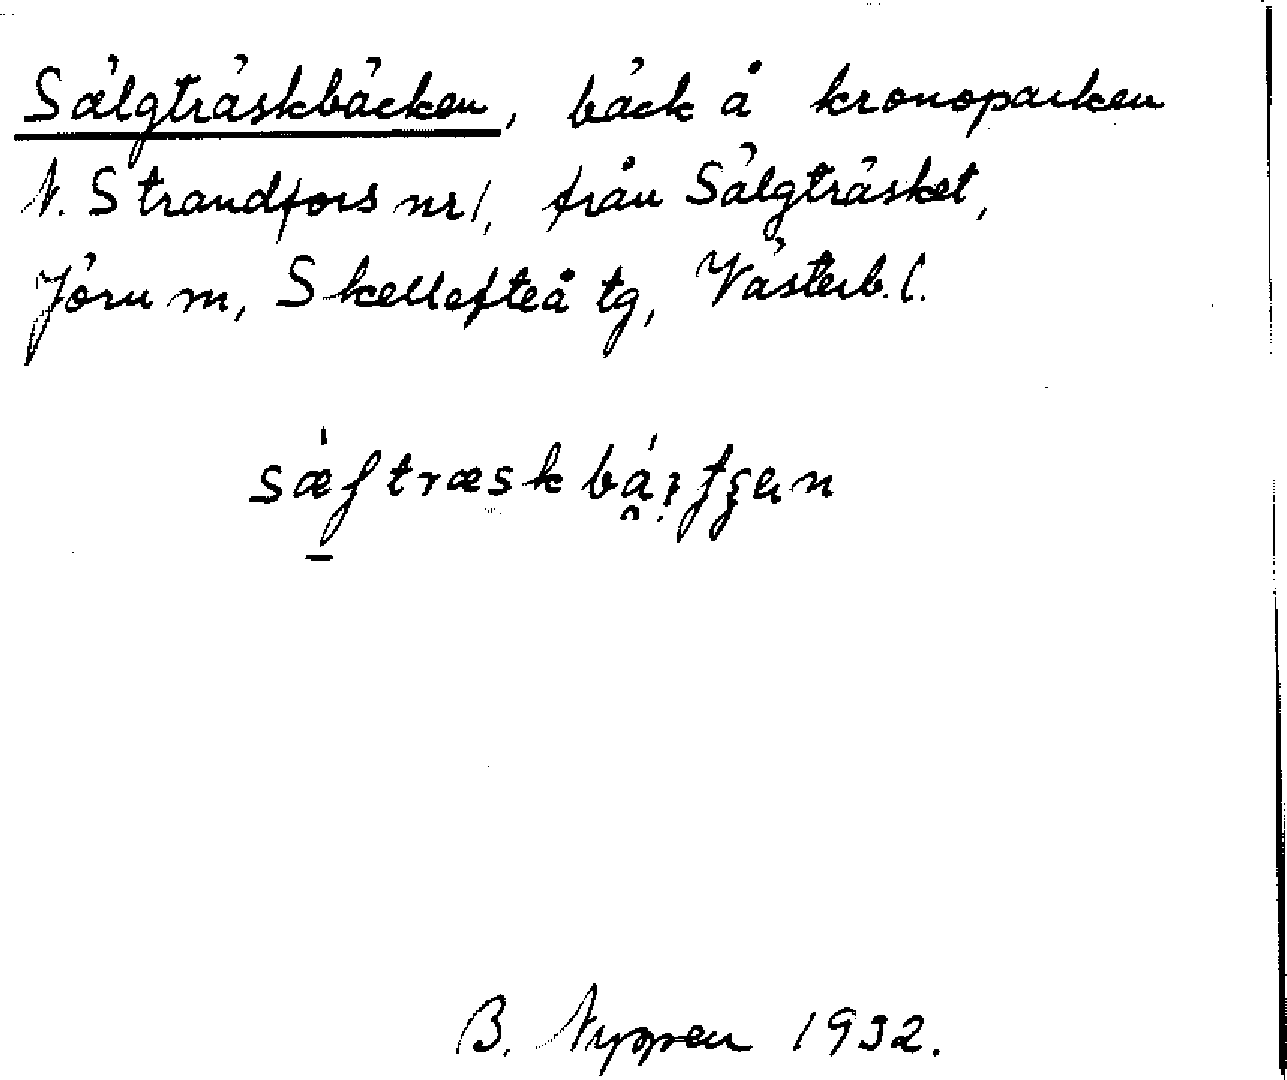 Sälgträskbäcken, bäck å kronoparken
N. Strandfors nr 1, från Sälgträsket,
Jörn sn, Skellefteå tg, Västerb. l.
B. Nyppen 1932.